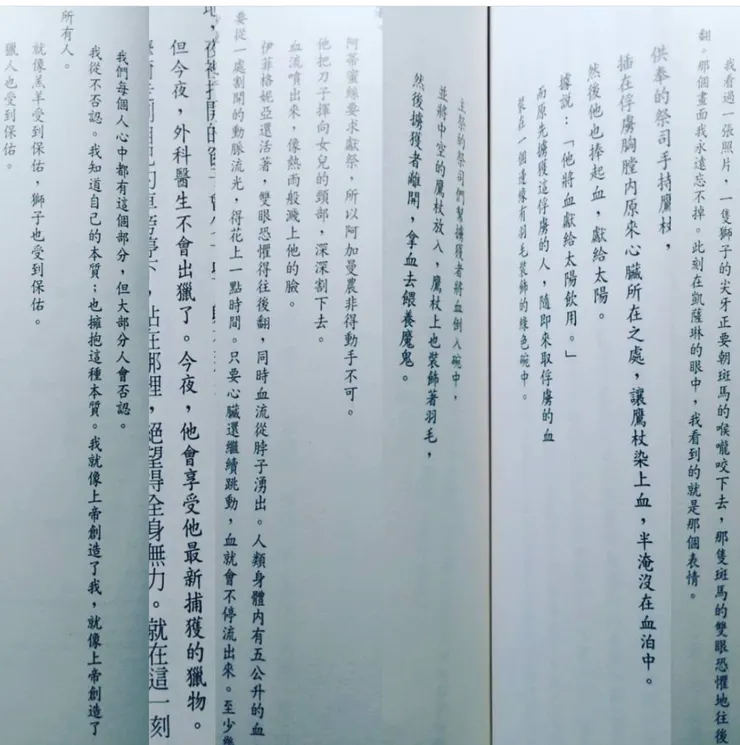 我看過一張照片，一隻獅子的尖牙正要朝斑馬的喉嚨咬下去，那隻斑馬的雙眼恐懼地往後
翻。那個畫面我永遠忘不掉。此刻在凱薩琳的眼中，我看到的就是那個表情。
供奉的祭司手持鷹杖，
插在俘虜胸膛內原來心臟所在之處，讓鷹杖染上血，半淹沒在血泊中。
然後他也捧起血，獻給太陽。
據說：「他將血獻給太陽飲用。」
而原先擄獲這俘虜的人，隨即來取俘虜的血
裝在一個邊緣有羽毛裝飾的綠色碗中。
主祭的祭司們幫擄獲者將血倒入碗中，
並將中空的鷹杖放入，鷹杖上也裝飾著羽毛，
然後擄獲者離開，拿血去餵養魔鬼。
阿蒂蜜絲要求獻祭，所以阿加曼農非得動手不可。
他把刀子揮向女兒的頸部，深深割下去。
血流噴出來，像熱雨般濺上他的臉。
伊菲格妮亞還活著，雙眼恐懼得往後翻，同時血流從脖子湧出。人類身體內有五公升的血
要從一處割開的動脈流光，得花上一點時間。只要心臟還繼續跳動，血就會不停流出來。至少幾
但今夜，外科醫生不會出獵了。今夜，他會享受他最新捕獲的獵物。
，站在那裡，絕望得全身無力。就在這一刻
我們每個人心中都有這個部分，但大部分人會否認。
我從不否認。我知道自己的本質；也擁抱這種本質。我就像上帝創造了我，就像上帝創造了
所有人。
就像羔羊受到保佑，獅子也受到保佑。
獵人也受到保佑。